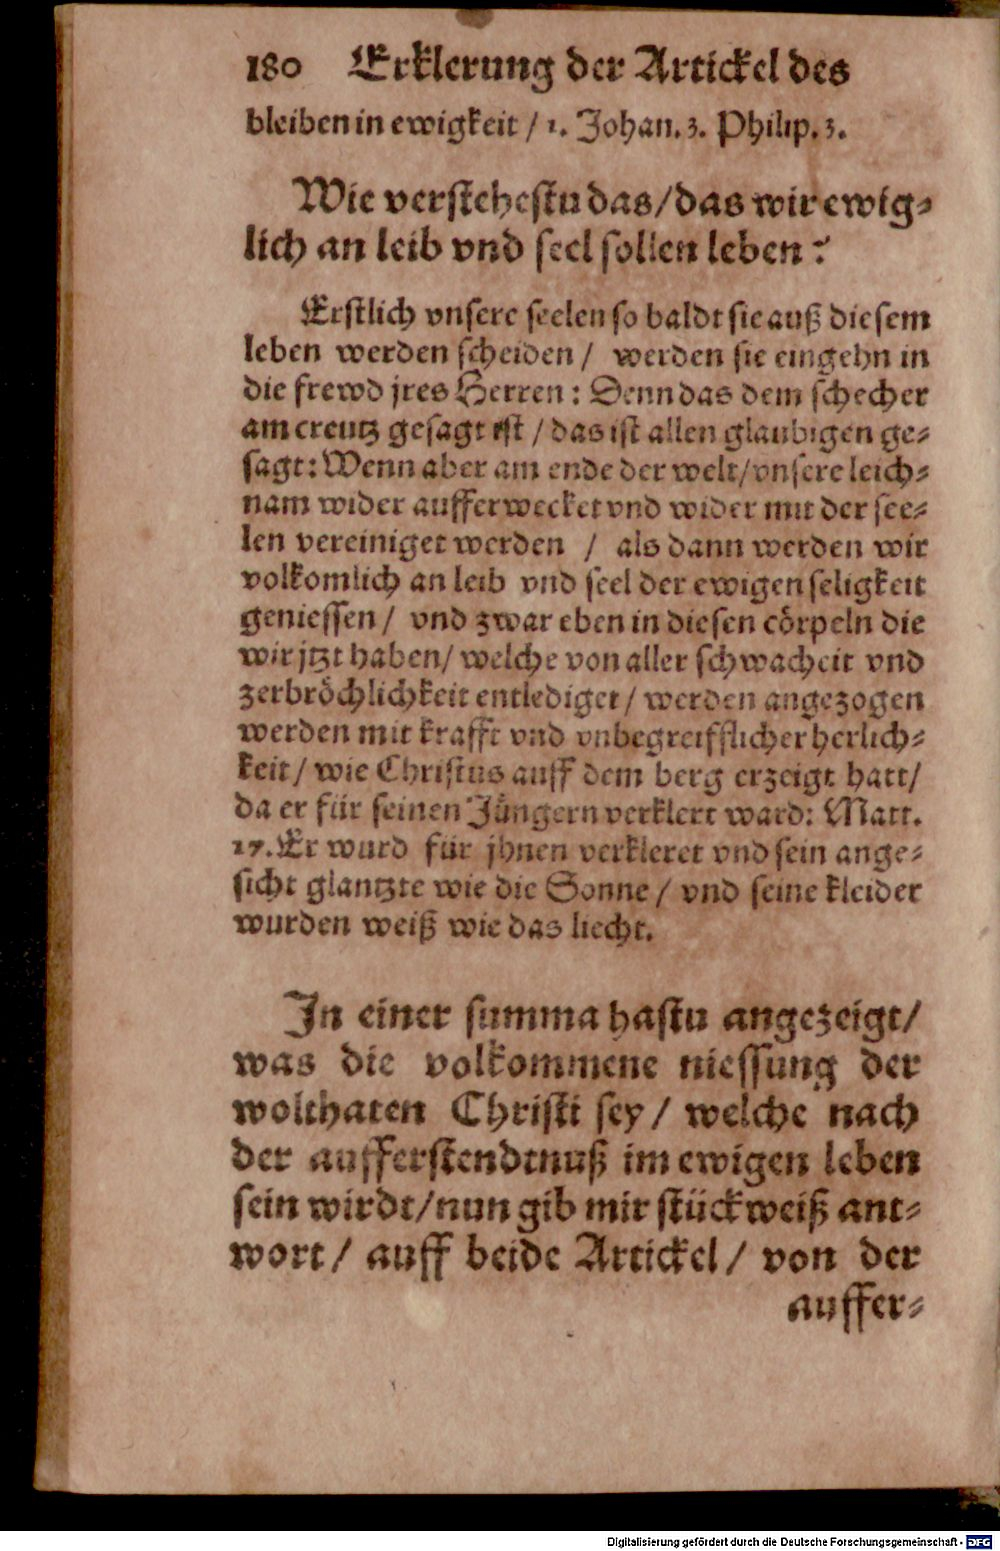 180 Erklerung der Artickel des
bleiben in ewigkeit / 1. Johan. 3. Philip. 3.
Wie verstehestu das / das wir ewig⸗
lich an leib vnd seel sollen leben?
Erstlich vnsere seelen so baldt sie auß diesem
leben werden scheiden / werden sie eingehn in
die frewd jres Herren: Denn das dem schecher
am creutz gesagt ist / das ist allen glaubigen ge⸗
sagt: Wenn aber am ende der welt / vnsere leich⸗
nam wider aufferwecket vnd wider mit der see⸗
len vereiniget werden / als dann werden wir
volkomlich an leib vnd seel der ewigen seligkeit
geniessen / vnd zwar eben in diesen cörpeln die
wir jtzt haben / welche von aller schwacheit vnd
zerbröchlichkeit entlediget / werden angezogen
werden mit krafft vnd vnbegreifflicher herlich⸗
keit / wie Christus auff dem berg erzeigt hatt /
da er für seinen Jüngern verklert ward: Matt.
17. Er wurd für jhnen verkleret vnd sein ange⸗
sicht glantzte wie die Sonne / vnd seine kleider
wurden weiß wie das liecht.
In einer summa hastu angezeigt /
was die volkommene niessung der
wolthaten Christi sey / welche nach
der aufferstendtnuß im ewigen leben
sein wirdt / nun gib mir stückweiß ant⸗
wort / auff beide Artickel / von der
auffer⸗
Digitalisierung gefördert durch die Deutsche Forschungsgemeinschaft - DFG